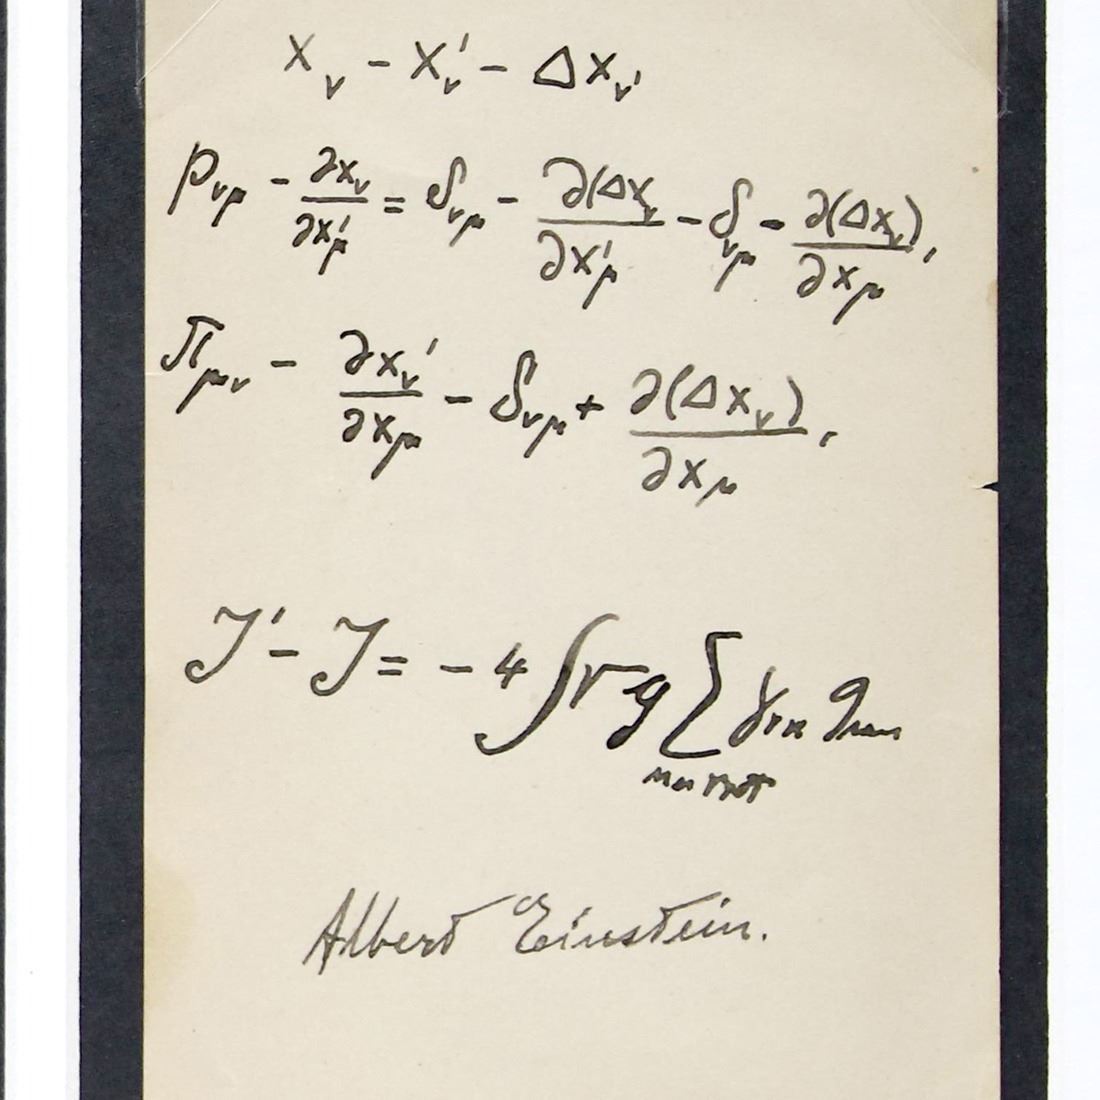 x_ν − x'_ν − Δx_ν'
p_νμ − ∂x_ν/∂x'_μ = δ_νμ − ∂(Δx_ν/∂x'_μ − δ_νμ − ∂(Δx_ν)/∂x_μ,
π_μν − ∂x'_ν/∂x_μ − δ_νμ + ∂(Δx_ν)/∂x_μ,
J' − J = − 4 ∫ √g ∑ γ g
Albert Einstein.